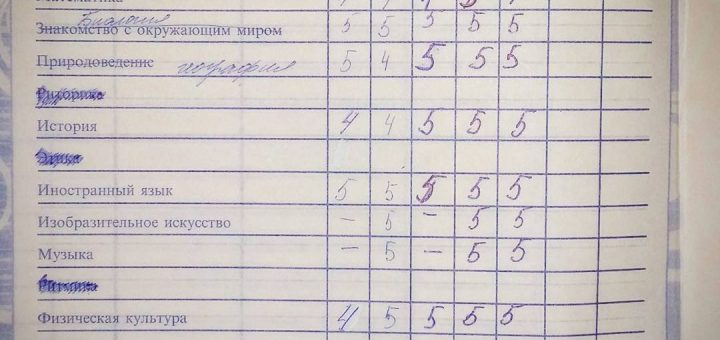 Математика
Биология
Знакомство с окружающим миром 5 5 5 5 5
Природоведение география 5 4 5 5 5
Риторика
История 4 4 5 5 5
Иностранный язык 5 5 5 5 5
Изобразительное искусство – 5 – 5 5
Музыка – 5 – 5 5
Ритмика
Физическая культура 4 5 5 5 5